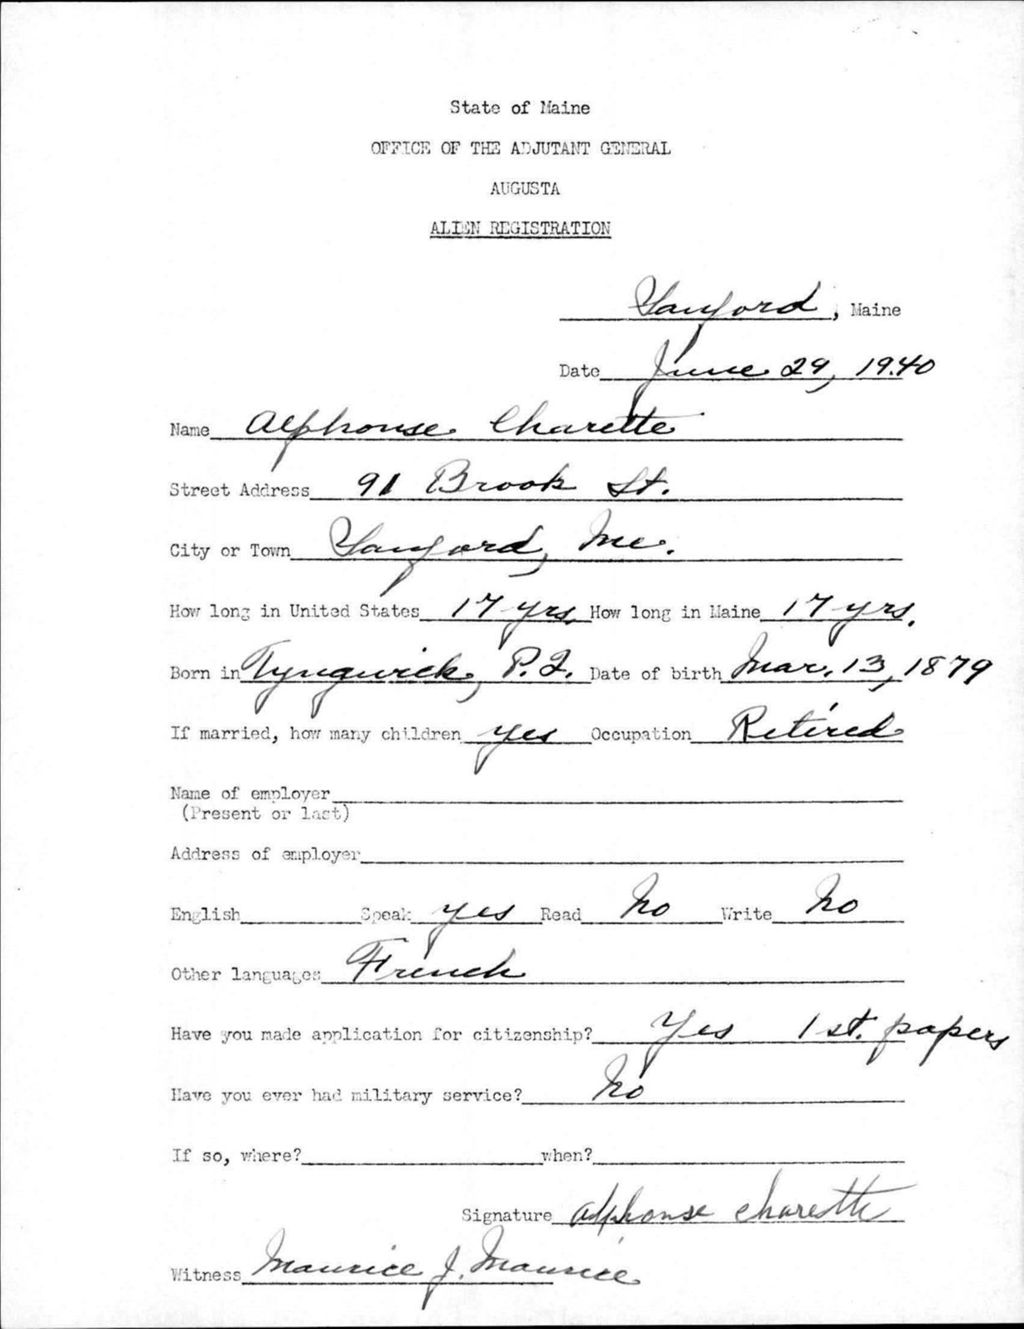 State of Maine
OFFICE OF THE ADJUTANT GENERAL
AUGUSTA
ALIEN REGISTRATION
Sanford, Maine
Date June 29, 1940
Name Alphonse Charette
Street Address 91 Brook St.
City or Town Sanford, Me.
How long in United States 17 yrs. How long in Maine 17 yrs.
Born in Tyngwick, P.Q. Date of birth Mar. 13, 1879
If married, how many children yes Occupation Retired
Name of employer
(Present or last)
Address of employer
English Speak yes Read No Write No
Other languages French
Have you made application for citizenship? Yes 1st. papers
Have you ever had military service? No
If so, where? when?
Signature Alphonse Charette
Witness Maurice J. Maurice